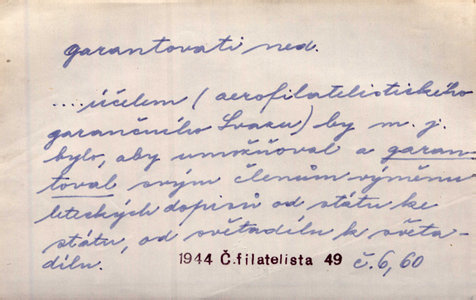 garantovati ned.
....účelem (aerofilatelistického
garančního Svazu) by m. j.
bylo, aby umožňoval a garan-
toval svým členům výměnu
leteckých dopisů od státu ke
státu, od světadílu k světa-
dílu.
1944 Č.filatelista 49 č.6,60